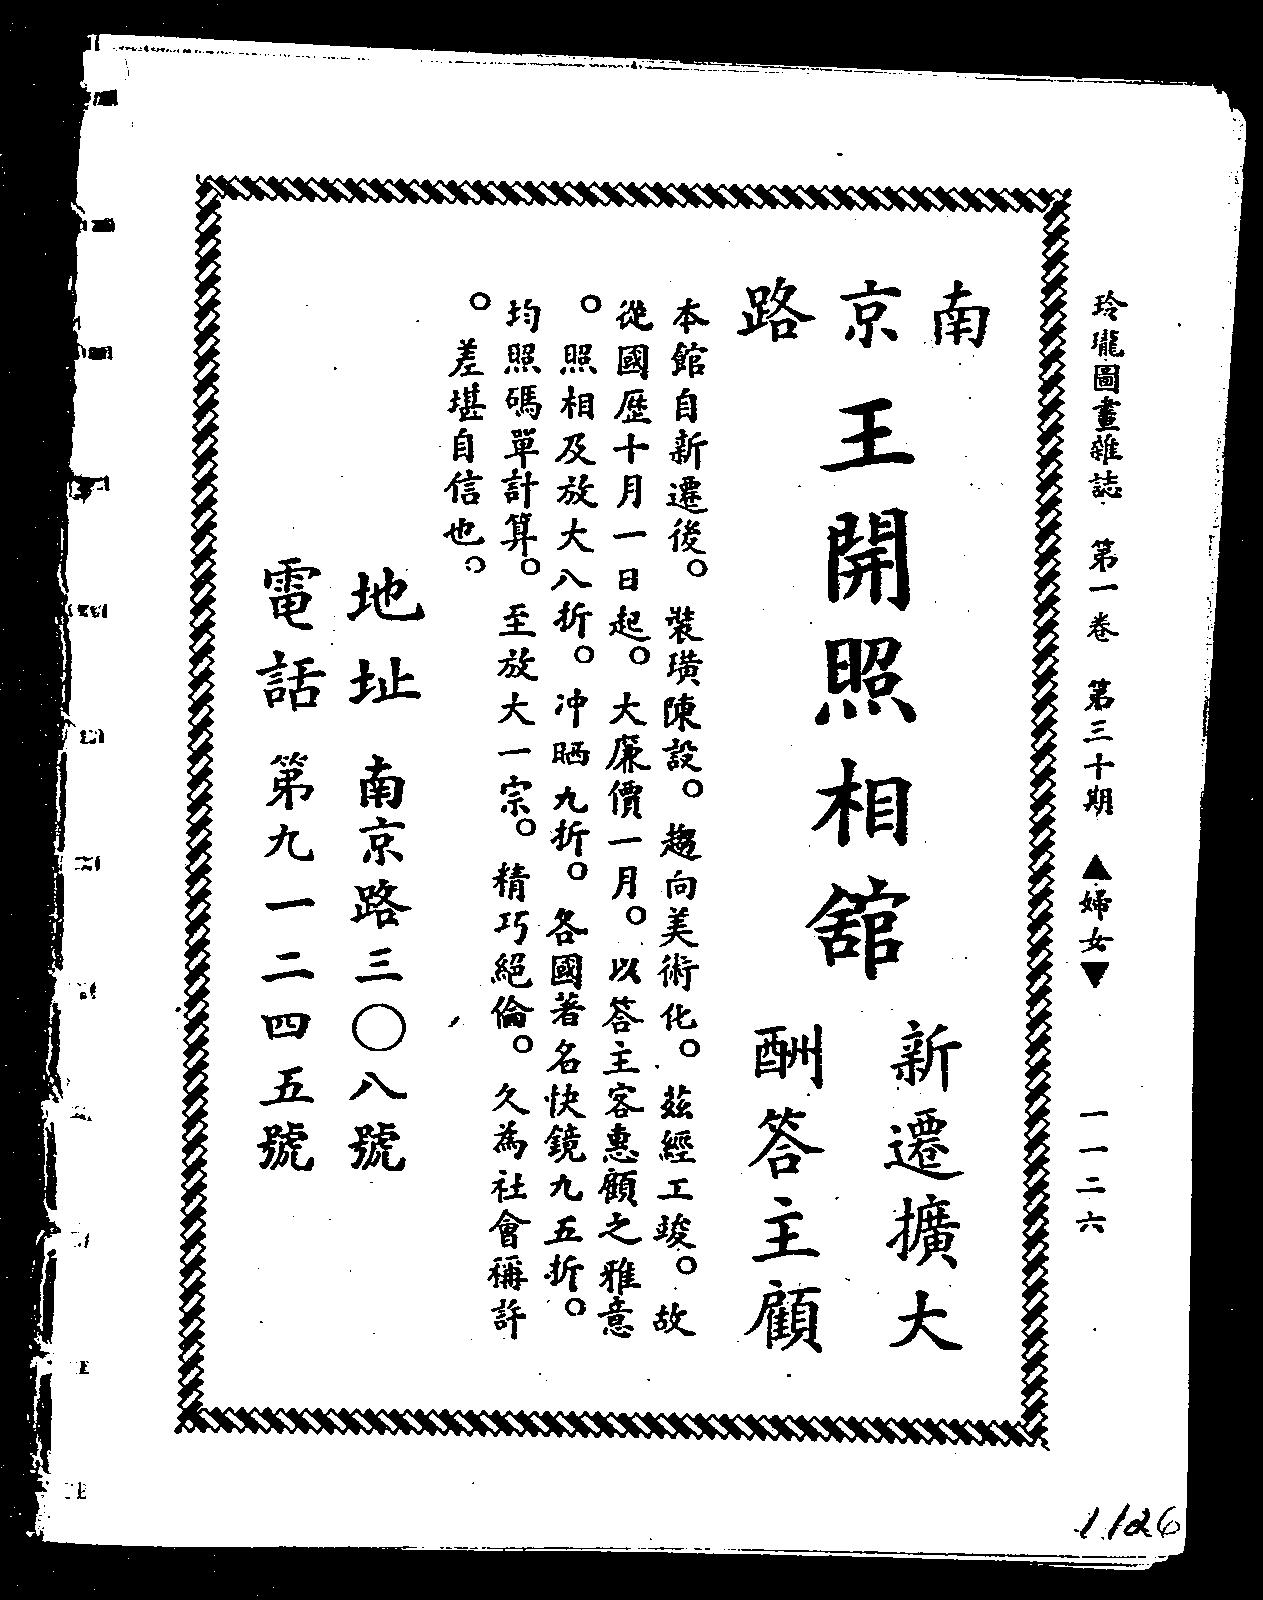 玲瓏圖畫雜誌 第一卷 第三十期 ▲婦女▼ 一一二六
南京路
王開照相舘
新遷擴大
酬答主顧
本館自新遷後。裝璜陳設。趨向美術化。茲經工竣。故
從國歷十月一日起。大廉價一月。以答主客惠顧之雅意
。照相及放大八折。冲晒九折。各國著名快鏡九五折。
均照碼單計算。至放大一宗。精巧絕倫。久為社會稱許
。差堪自信也。
地址 南京路三〇八號
電話 第九一二四五號
1126